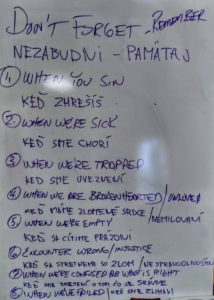 DON'T FORGET - REMEMBER
NEZABUDNI - PAMÄTAJ
1. WHEN YOU SIN
KEĎ ZHREŠÍŠ
2. WHEN WE'RE SICK
KEĎ SME CHORÍ
3 WHEN WE'RE TRAPPED
KEĎ SME UVEZNENÍ
4 WHEN WE ARE BROKENHEARTED / UNLOVED
KEĎ MÁME ZLOMENÉ SRDCE / NEMILOVANÍ
5 WHEN WE'RE EMPTY
KEĎ SA CÍTIME PRÁZDNI
6 ENCOUNTER WRONG / INJUSTICE
KEĎ SA STRETNEME SO ZLOM / NESPRAVODLIVOSŤOU
7 WHEN WE'RE CONFUSED AB. WHAT IS RIGHT
KEĎ SME ZMÄTENÍ O TOM ČO JE SPRÁVNE
8 WHEN WE'VE FAILED / KEĎ SME ZLYHALI